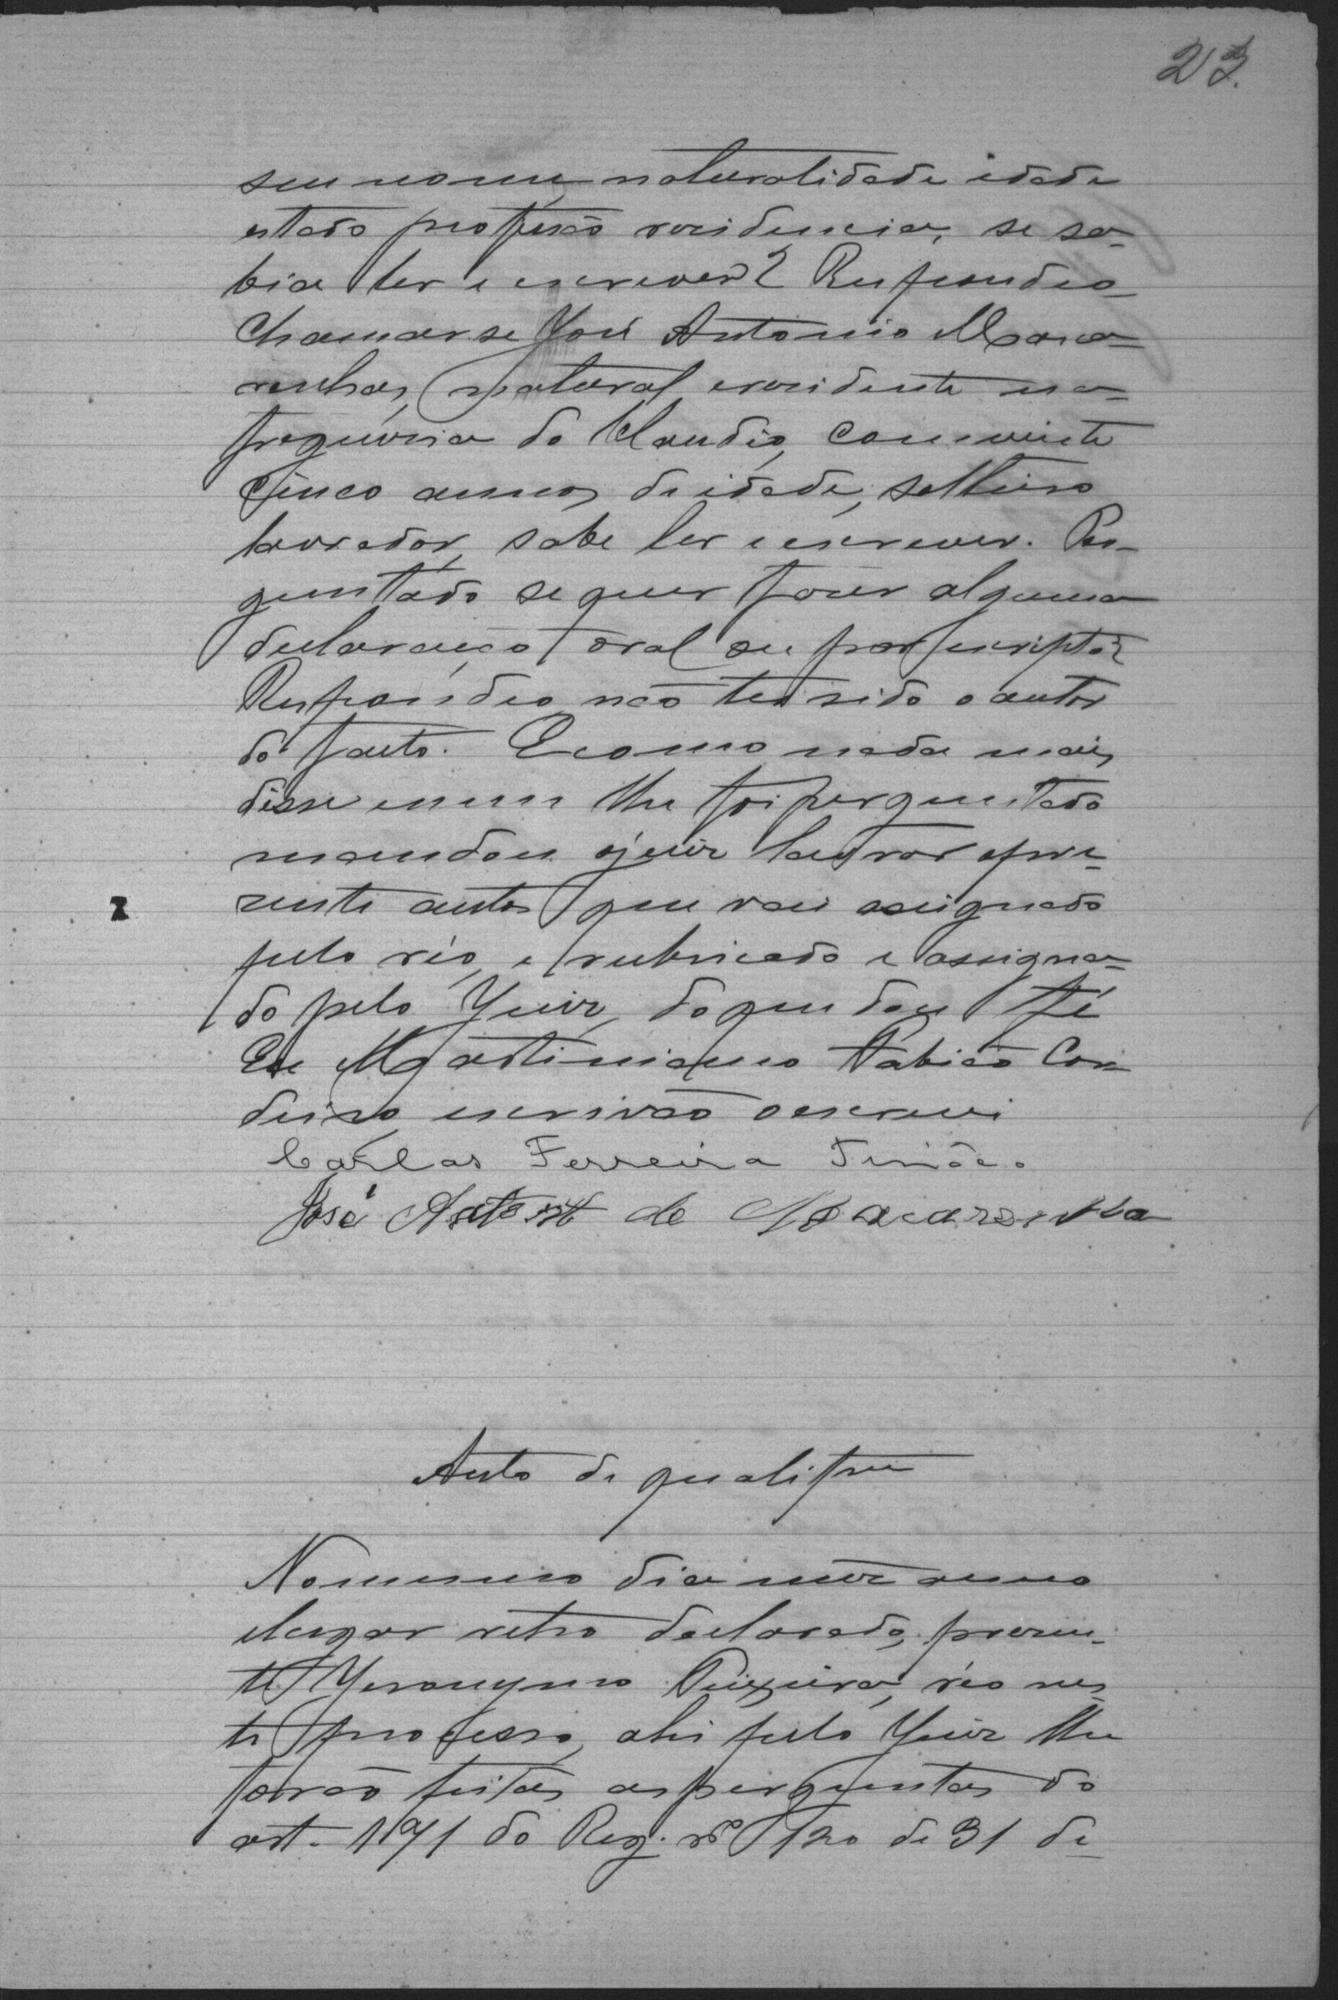 23.
seu nome, naturalidade idade
estado profissão rezidencia, se sa-
bia ler e escrever? Respondeo
chamar se José Antonio Maca-
renhas, natural e rezidente na
freguezia do Claudio, com vinte
cinco annos de idade, solteiro
lavrador, sabe ler e escrever. Per-
guntado se quer fazer alguma
declaração oral ou por escripto?
Respondeo não ter sido o autor
do facto. E como nada mais
disse e nem lhe foi perguntado
mandou o juiz lavrar o pre-
zente auto que vai assignado
pelo réo, e rubricado e assigna-
do pelo Juiz, do que dou fé
Eu Martiniano Fabião Cor-
deiro, escrivão o escrevi
Carlos Ferreira Tinôco.
José Antonio de Macarenha
Auto de qualifm
No mesmo dia mez anno
e lugar retro declarado, prezen-
te Jeronymo Teixeira, réo nes-
te processo, ahi pelo Juiz lhe
forão feitas as perguntas do
art. 171 do Reg. nº 120 de 31 de